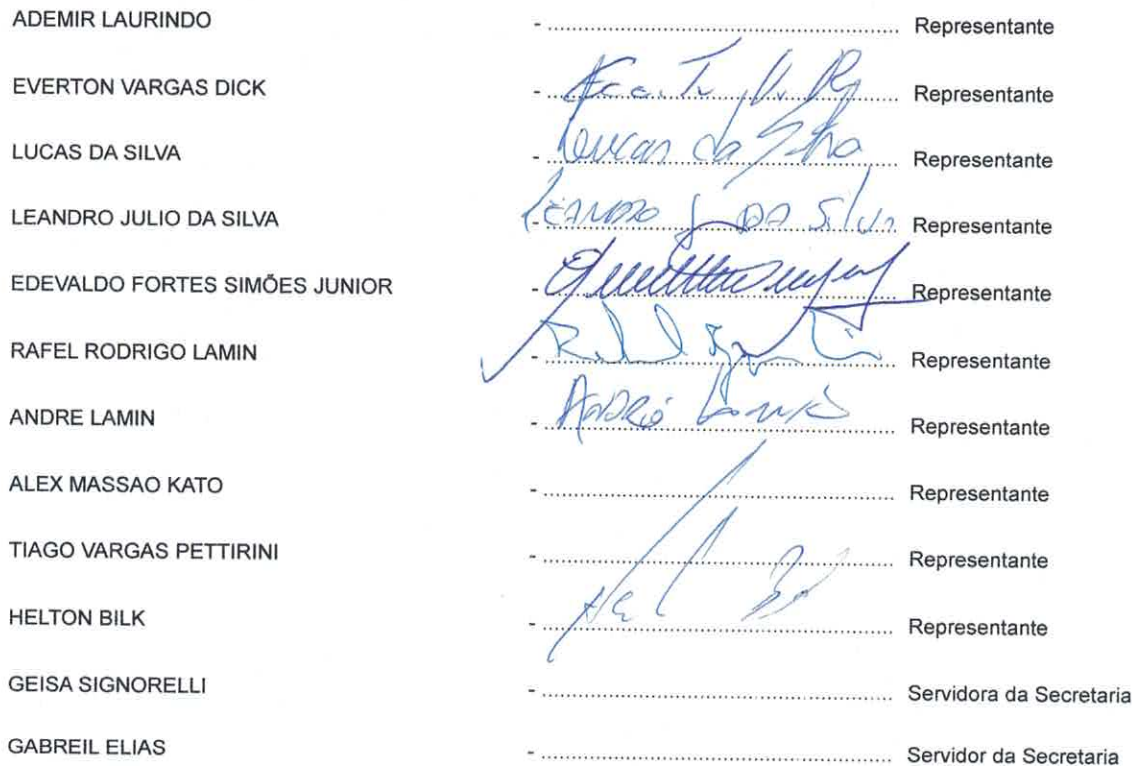 ADEMIR LAURINDO - ........................ Representante
EVERTON VARGAS DICK - ........................ Representante
LUCAS DA SILVA - Lucas da Silva Representante
LEANDRO JULIO DA SILVA - LEANDRO J DA Silva Representante
EDEVALDO FORTES SIMÕES JUNIOR - ........................ Representante
RAFEL RODRIGO LAMIN - ........................ Representante
ANDRE LAMIN - André Lamin Representante
ALEX MASSAO KATO - ........................ Representante
TIAGO VARGAS PETTIRINI - ........................ Representante
HELTON BILK - ........................ Representante
GEISA SIGNORELLI - ........................ Servidora da Secretaria
GABREIL ELIAS - ........................ Servidor da Secretaria